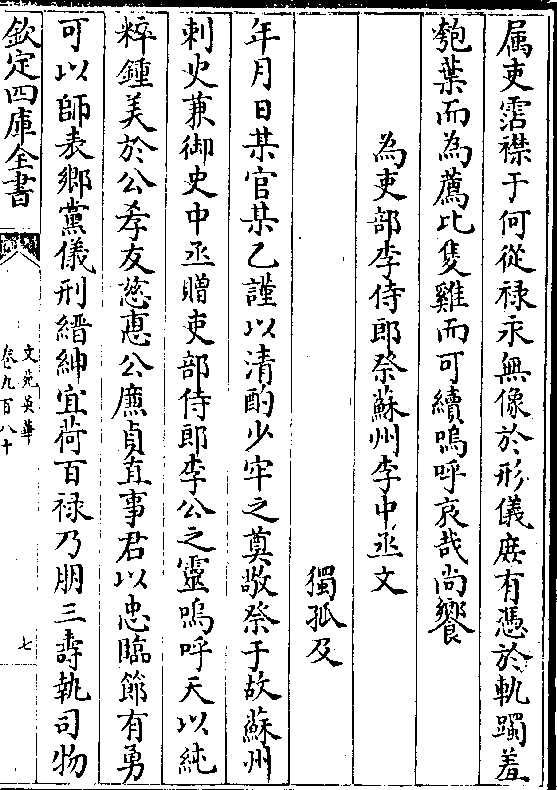 属吏霑襟于何從禄永無像於形儀庻有憑於軌躅羞
匏葉而為薦比隻雞而可續嗚呼哀哉尚饗
為吏部李侍郎祭蘇州李中丞文
獨孤及
年月日某官某乙謹以清酌少牢之奠敬祭于故蘇州
刺史兼御史中丞贈吏部侍郎李公之靈嗚呼天以純
粹鍾美於公孝友慈恵公廉貞直事君以忠臨節有勇
可以師表鄉黨儀刑縉紳宜荷百禄乃朋三壽執司物
欽定四庫全書
文苑英華
卷九百八十
七